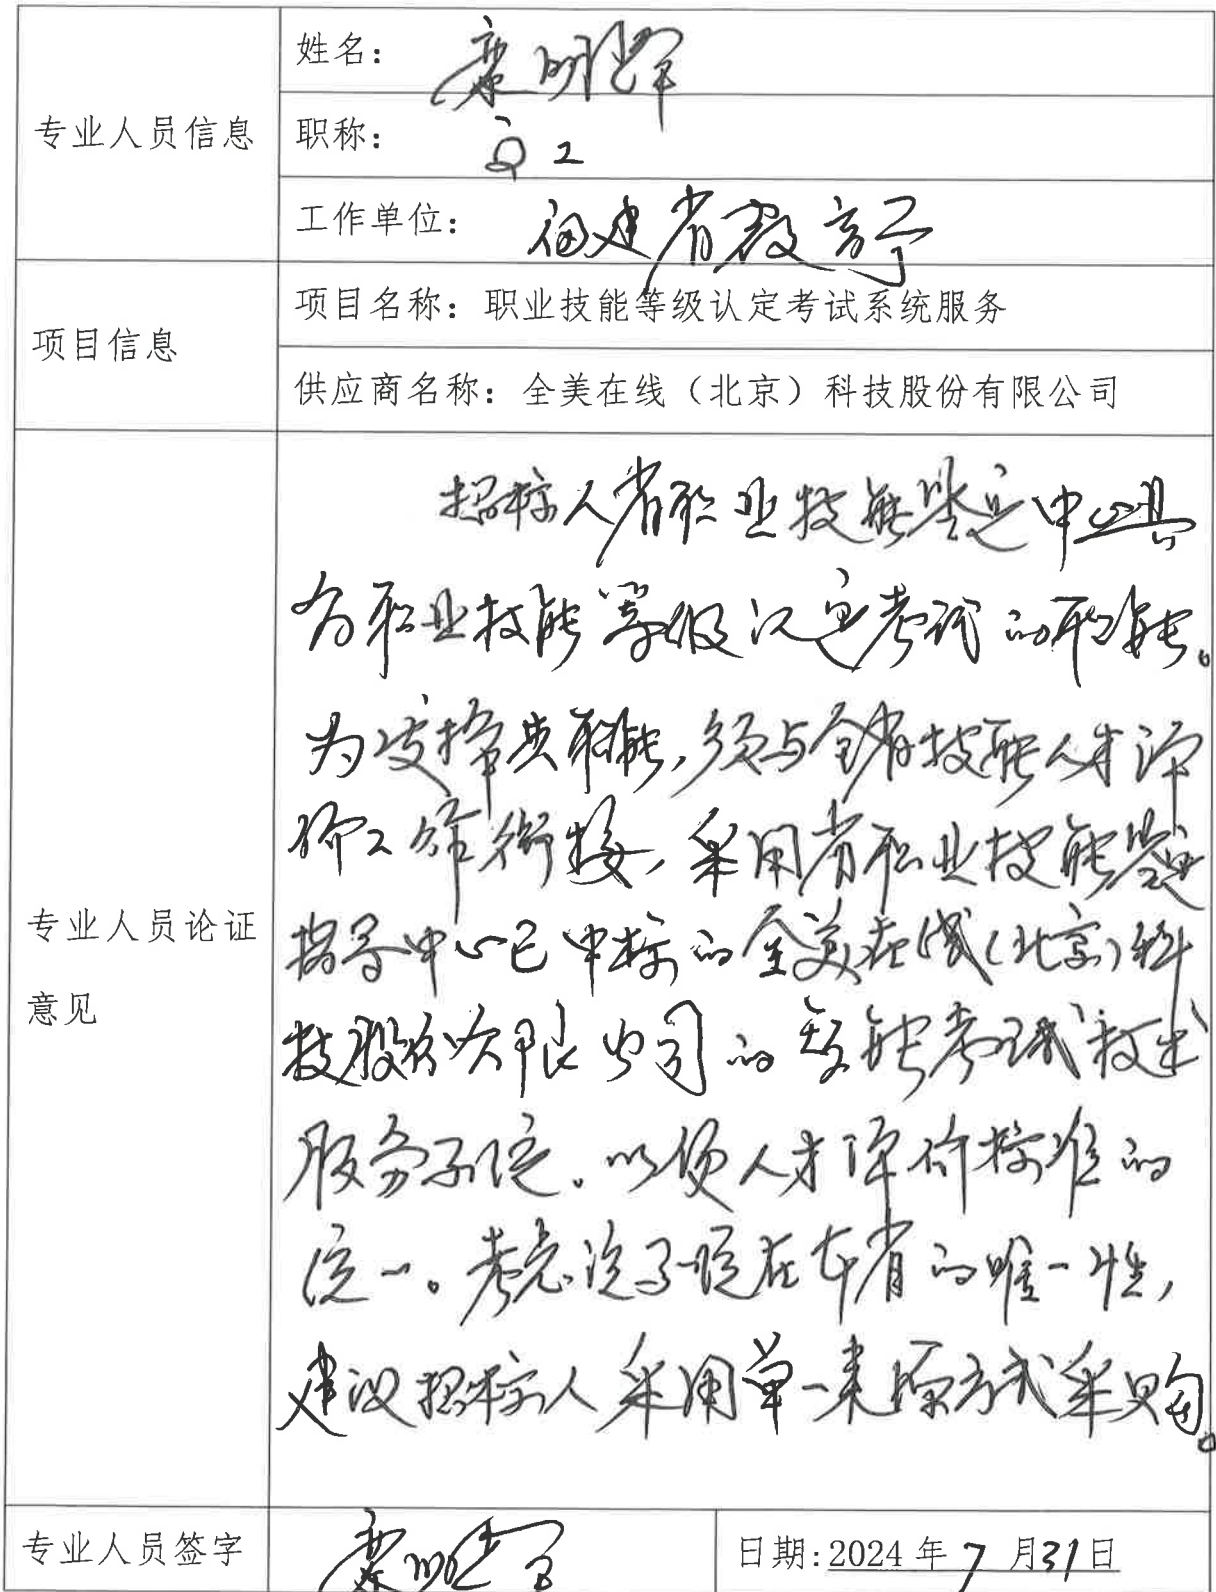 专业人员信息
姓名：
职称：高工
工作单位：福建省教育厅
项目信息
项目名称：职业技能等级认定考试系统服务
供应商名称：全美在线（北京）科技股份有限公司
专业人员论证
意见
招标人省职业技能鉴定中心具
有职业技能等级认定考试的职能。
为发挥其职能，须与全省技能人才评
价工作衔接，采用省职业技能鉴定
指导中心已中标的全美在线（北京）科
技股份有限公司的智能考试技术
服务系统。以便人才评价标准的
统一。考虑该系统在本省的唯一性，
建议招标人采用单一来源方式采购。
专业人员签字
日期：2024年7月31日